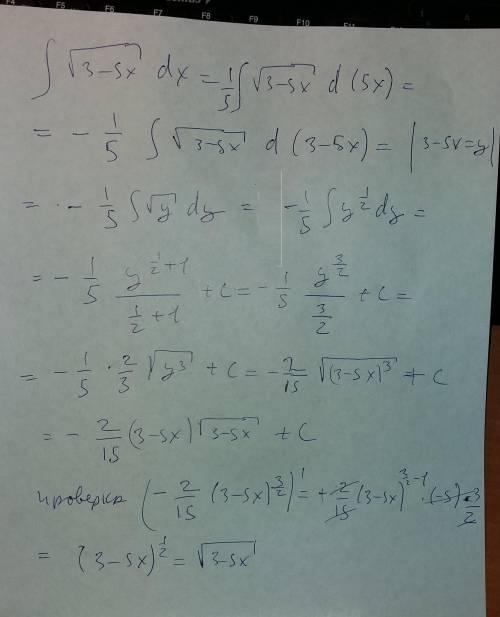 ∫ √(3-5x) dx = 1/5 ∫ √(3-5x) d (5x) =
= - 1/5 ∫ √(3-5x) d (3-5x) = | 3-5x=y |
= - 1/5 ∫ √y dy = - 1/5 ∫ y^(1/2) dy =
= - 1/5 y^(1/2+1)/(1/2+1) + C = - 1/5 y^(3/2)/(3/2) + C =
= - 1/5 · 2/3 √(y^3) + C = - 2/15 √((3-5x)^3) + C
= - 2/15 (3-5x) √(3-5x) + C
проверка (- 2/15 (3-5x)^(3/2))' = + 2/15 (3-5x)^(3/2-1) · (-5) · 3/2
= (3-5x)^(1/2) = √(3-5x)